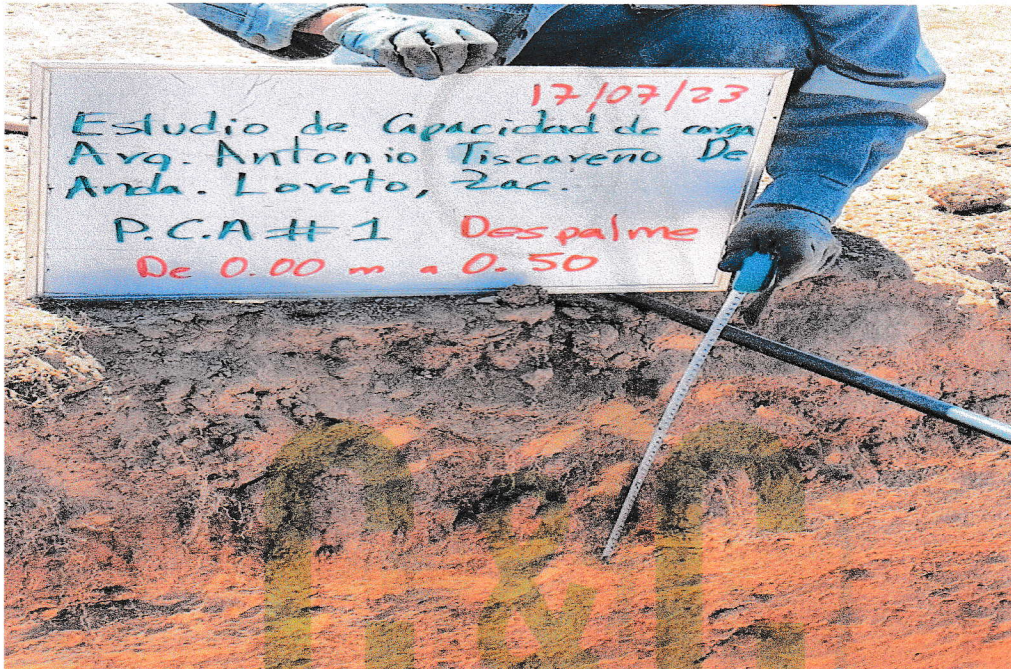 17/07/23
Estudio de Capacidad de carga
Arq. Antonio Tiscareño De
Anda. Loreto, Zac.
P.C.A # 1 Despalme
De 0.00 m a 0.50